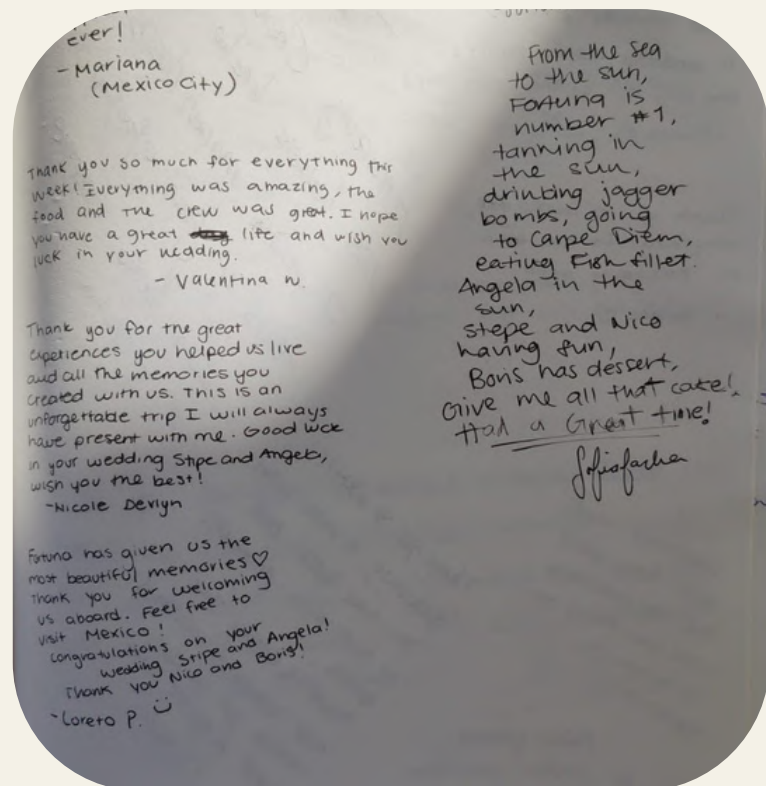 ever!
- Mariana
(Mexico City)
Thank you so much for everything this
week! Everything was amazing, the
food and the crew was great. I hope
you have a great life and wish you
luck in your wedding.
- Valentina W.
Thank you for the great
experiences you helped us live
and all the memories you
created with us. This is an
unforgettable trip I will always
have present with me. Good luck
in your wedding Stipe and Angela,
wish you the best!
-Nicole Devlyn
Fortuna has given us the
most beautiful memories ♡
Thank you for welcoming
us aboard. Feel free to
visit Mexico!
congratulations on your
wedding Stipe and Angela!
Thank you Nico and Boris!
-Loreto P. ü
From the sea
to the sun,
Fortuna is
number #1,
tanning in
the sun,
drinking jagger
bombs, going
to Carpe Diem,
eating Fish fillet.
Angela in the
sun,
Stepe and Nico
having fun,
Boris has dessert,
Give me all that cake!
Had a Great time!